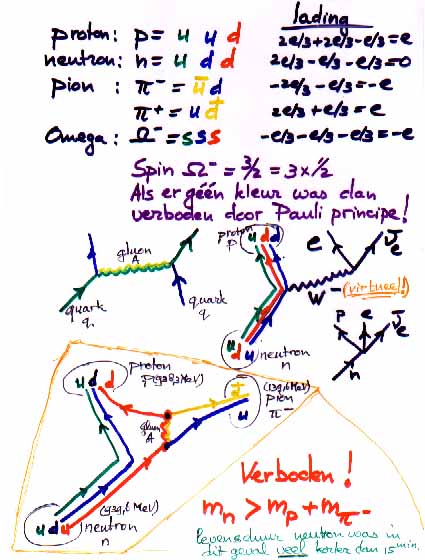 lading
proton: p = u u d 2e/3+2e/3-e/3=e
neutron: n = u d d 2e/3-e/3-e/3=0
pion: π⁻ = ū d -2e/3-e/3=-e
π⁺ = u d̄ 2e/3+e/3=e
Omega: Ω⁻ = sss -e/3-e/3-e/3=-e
Spin Ω⁻ = 3/2 = 3 x 1/2
Als er géén kleur was dan
verboden door Pauli principe!
gluon
A
quark
q
quark
q
proton
p
u d d
e
ν̄e
W - (virtueel!)
u d u
neutron
n
p e ν̄e
n
u d d
proton
p(938,3MeV)
gluon
A
d̄
u
(139,6 MeV)
pion
π⁻
u d u
(939,6 MeV)
neutron
n
Verboden!
mn > mp + mπ-
Levensduur neutron was in
dit geval veel korter dan 15 min.